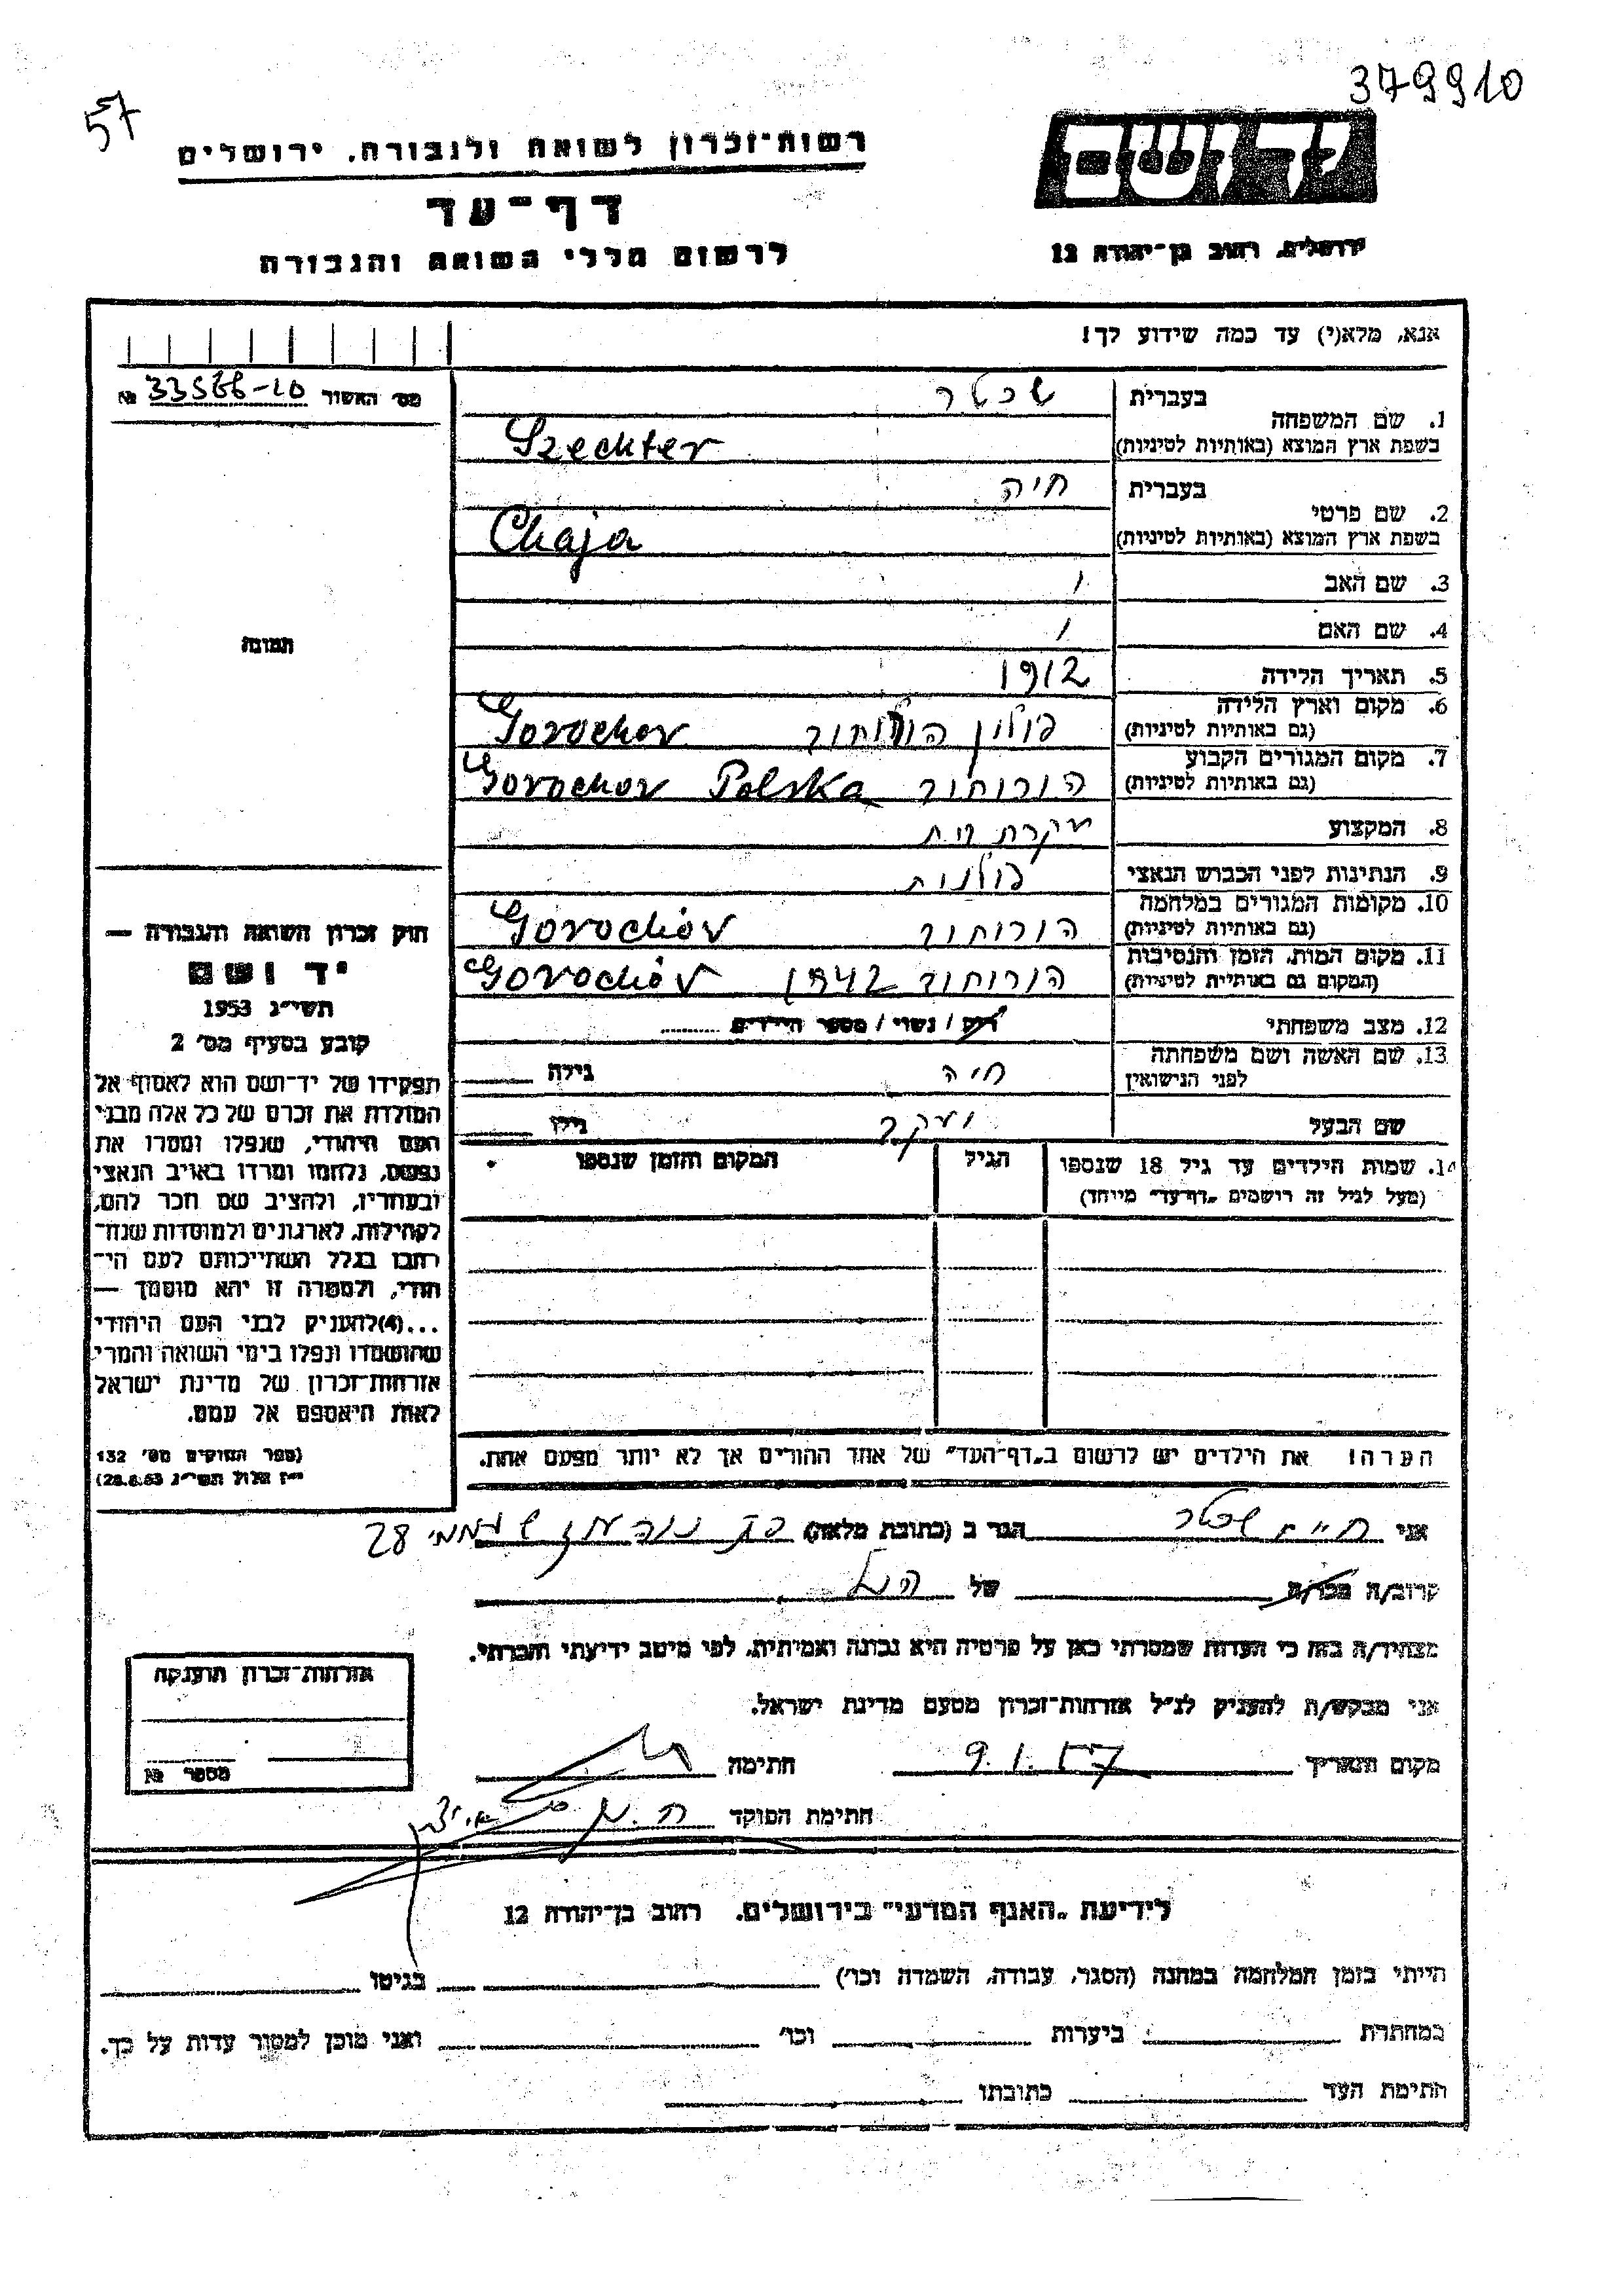 379910
57
רשות־זכרון לשואה ולגבורה, ירושלים
דף־עד
לרשום חללי השואה והגבורה
יד ושם
ירושלים, רחוב בן־יהודה 12
אנא, מלא(י) עד כמה שידוע לך!
מס׳ האשור 33566-20 №
תמונה
1. שם המשפחה בעברית שכטר
בשפת ארץ המוצא (באותיות לטיניות) Szechter
2. שם פרטי בעברית חיה
בשפת ארץ המוצא (באותיות לטיניות) Chaja
3. שם האב /
4. שם האם /
5. תאריך הלידה 1912
6. מקום וארץ הלידה (גם באותיות לטיניות) פולין הורוחוב Gorochov
7. מקום המגורים הקבוע (גם באותיות לטיניות) הורוחוב Gorochov Polska
8. המקצוע עקרת בית
9. הנתינות לפני הכבוש הנאצי פולנית
10. מקומות המגורים במלחמה (גם באותיות לטיניות) הורוחוב Gorochóv
11. מקום המות, הזמן והנסיבות (המקום גם באותיות לטיניות) הורוחוב 1942 Gorochóv
12. מצב משפחתי רווק / נשוי / מספר הילדים
13. שם האשה ושם משפחתה לפני הנישואין חיה גילה
שם הבעל יעקב גילו
14. שמות הילדים עד גיל 18 שנספו (מעל לגיל זה רושמים „דף־עד״ מיוחד) הגיל המקום והזמן שנספו
הערה! את הילדים יש לרשום ב„דף־העד״ של אחד ההורים אך לא יותר מפעם אחת.
חוק זכרון השואה והגבורה —
יד ושם
תשי״ג 1953
קובע בסעיף מס׳ 2
תפקידו של יד־ושם הוא לאסוף אל
המולדת את זכרם של כל אלה מבני
העם היהודי, שנפלו ומסרו את
נפשם, נלחמו ומרדו באויב הנאצי
ובעוזריו, ולהציב שם וזכר להם,
לקהילות, לארגונים ולמוסדות שנח־
רבו בגלל השתייכותם לעם הי־
הודי, ולמטרה זו יהא מוסמך —
...(4) להעניק לבני העם היהודי
שהושמדו ונפלו בימי השואה והמרי
אזרחות־זכרון של מדינת ישראל
לאות היאספם אל עמם.
(ספר החוקים מס׳ 132
י״ז אלול תשי״ג 28.8.53)
אני חיים שכטר הגר ב (כתובת מלאה) 28
קרוב/ה מכר/ה של הנ״ל
מצהיר/ה בזה כי העדות שמסרתי כאן על פרטיה היא נכונה ואמיתית, לפי מיטב ידיעתי והכרתי.
אני מבקש/ת להעניק לנ״ל אזרחות־זכרון מטעם מדינת ישראל.
מקום ותאריך 9.1.57 חתימה
חתימת הפוקד
אזרחות־זכרון הוענקה
מספר №
לידיעת „האגף המדעי״ בירושלים. רחוב בן־יהודה 12
הייתי בזמן המלחמה במחנה (הסגר, עבודה, השמדה וכו׳) בגיטו
במחתרת ביערות וכו׳ ואני מוכן למסור עדות על כך.
חתימת העד כתובתו